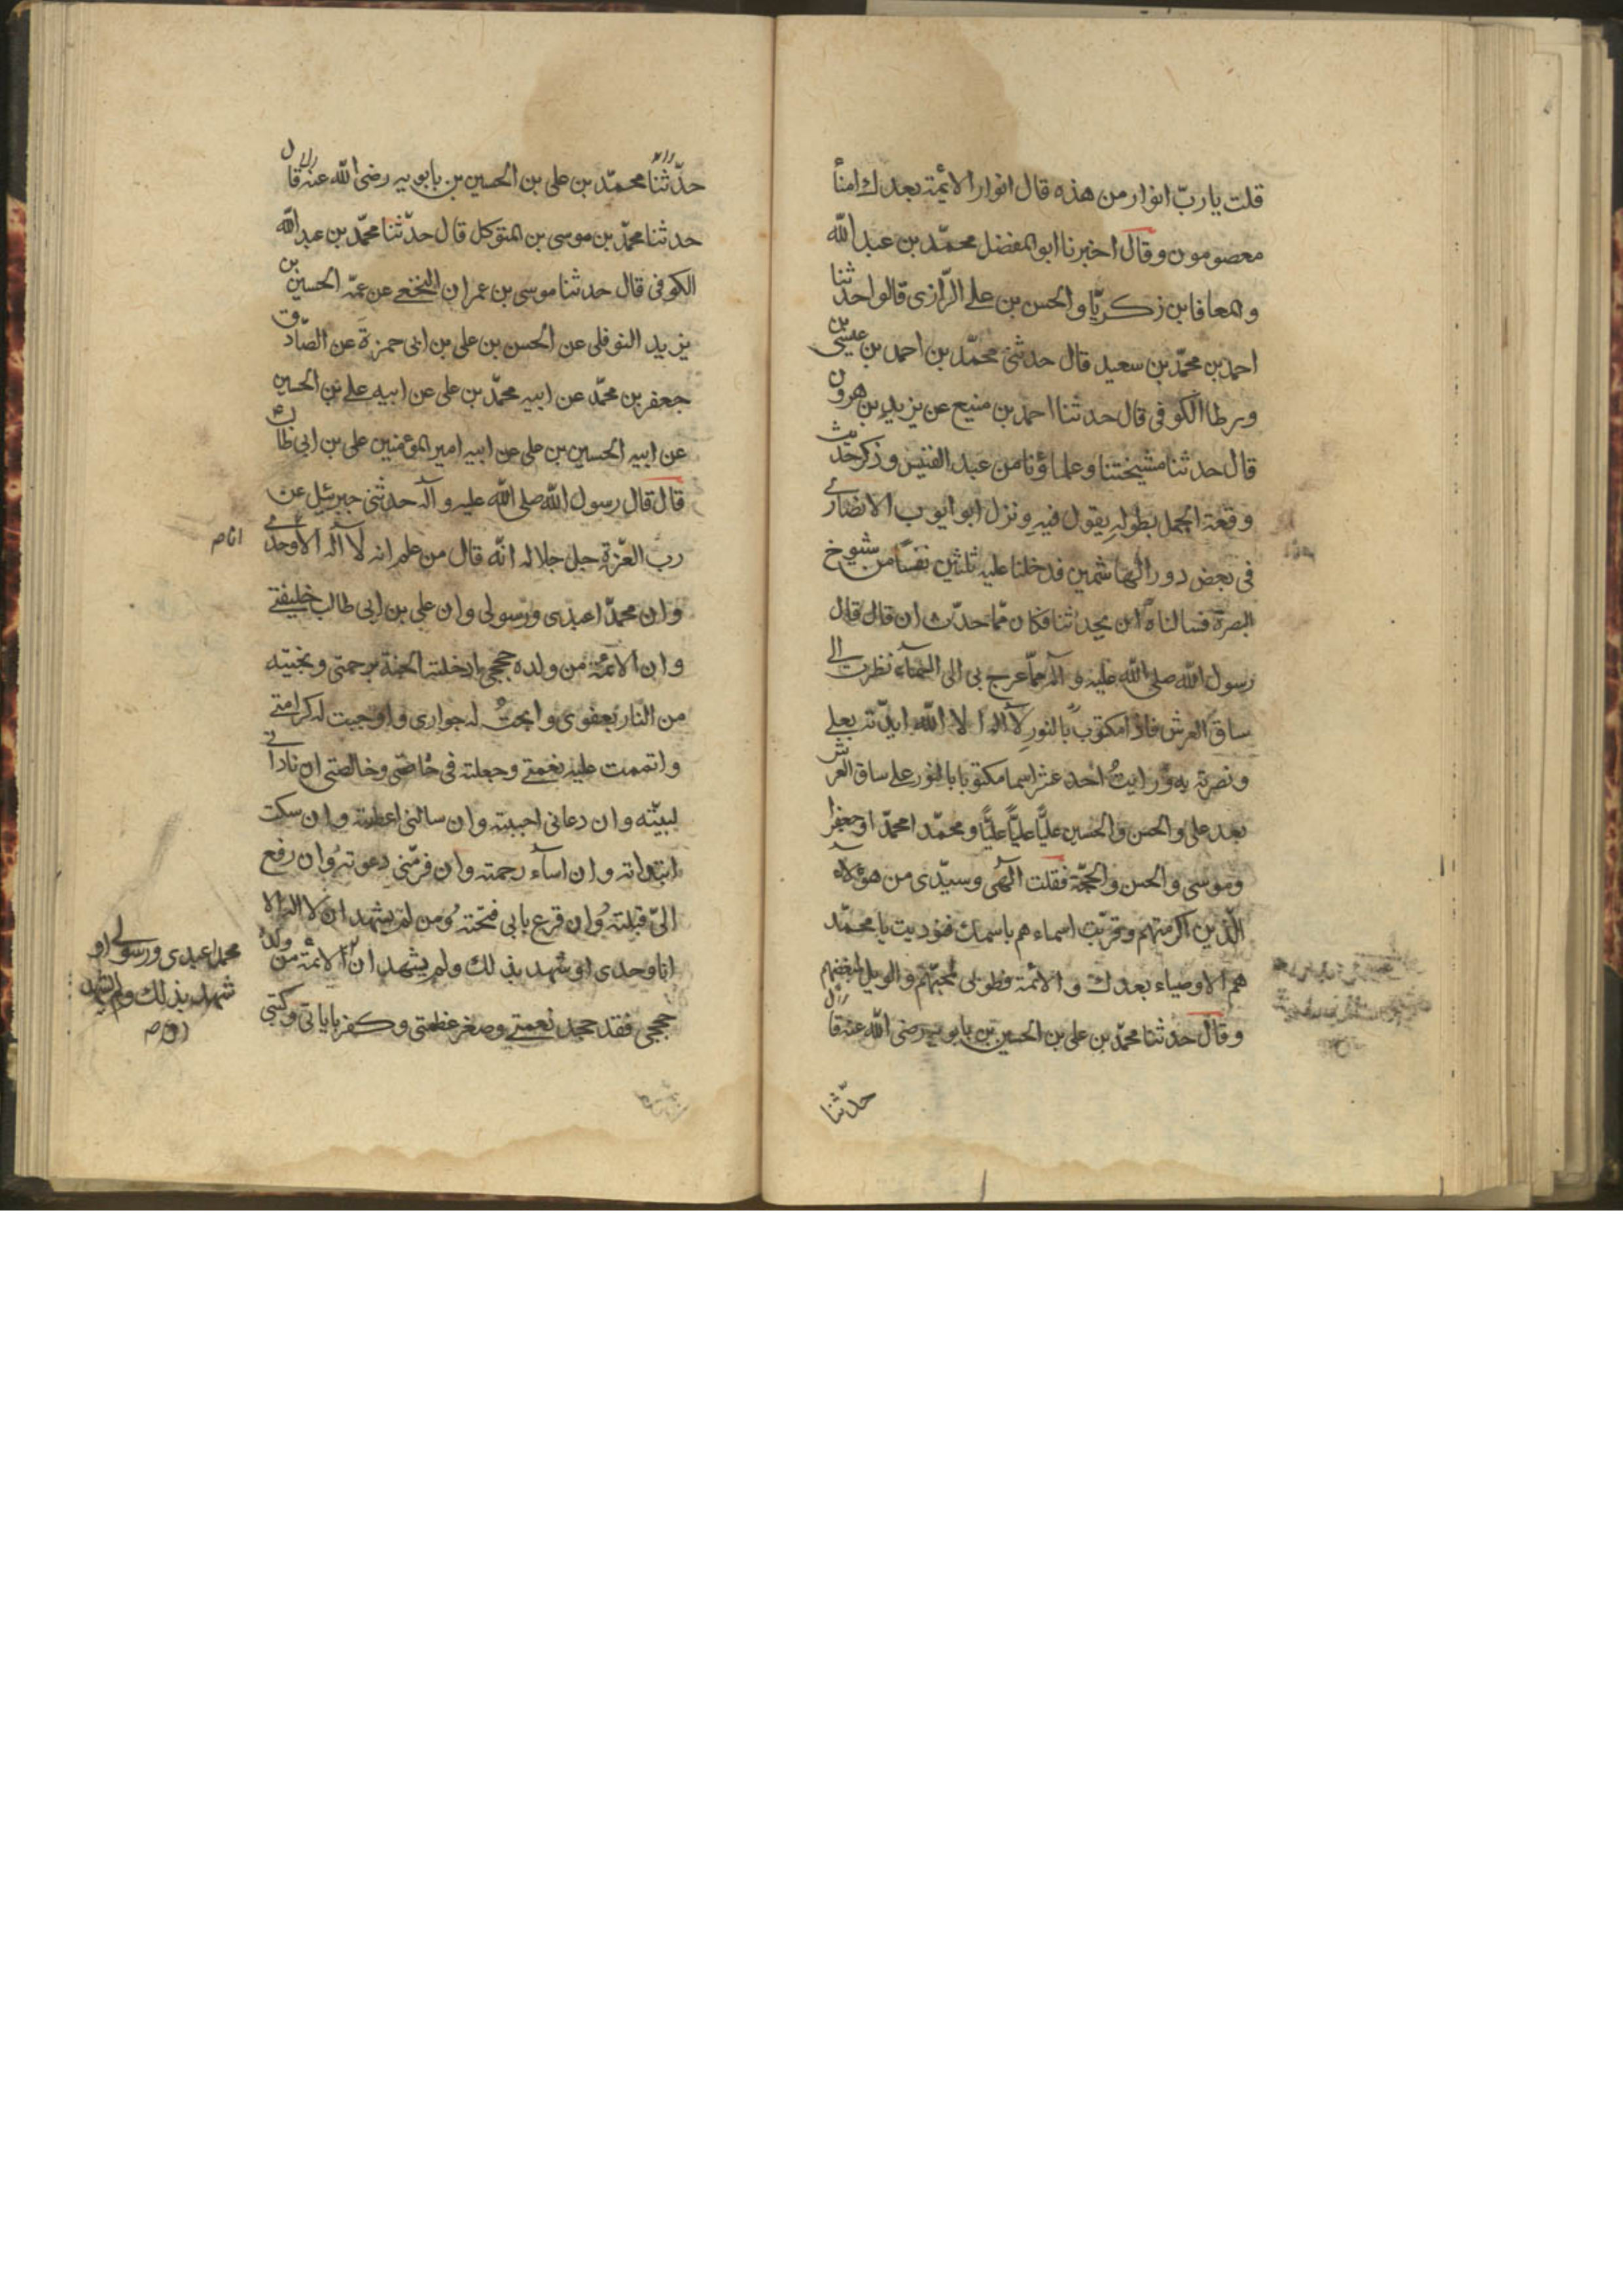 قلت يا ربّ انوار من هذه قال انوار الائمّة بعدك امنأ
معصومون وقال اخبرنا ابو المفضل محمّد بن عبد الله
والمعافا بن زكريّا والحسن بن علي الرّازى قالوا حدثنا
احمد بن محمّد بن سعيد قال حدثنى محمّد بن احمد بن عيسى بن
ورطا الكوفى قال حدثنا احمد بن منيع عن يزيد بن هرون
قال حدثنا مشيختنا وعلماؤنا من عبد القيس وذكر حديث
وقعة الجمل بطوله يقول فيه ونزل ابو ايوب الانصارى
فى بعض دور الهاشمين فدخلنا عليه ثلثين نفسا من شيوخ
البصرة فسالناه ان يحدثنا فكان ممّا حدّث ان قال قال
رسول الله صلى الله عليه وآله لمّا عرج بى الى السّماء نظرت الى
ساق العرش فاذا مكتوب بالنور لا اله الا الله ايدّته بعلى
ونصرته به ورايتُ احد عشر اسما مكتوبا بالنور على ساق العرش
بعد على والحسن والحسين عليًّا عليًّا عليًّا ومحمّدا محمّدا وجعفرا
وموسى والحسن والحجّة فقلت آلهى وسيّدى من هؤلاء
الّذين اكرمتهم وقرّبت اسماءهم باسمك فنوديت يا محمّد
هم الاوصياء بعدك والائمّة فطوبى لمحبّهم والويل لمبغضهم
وقال حدثنا محمّد بن على بن الحسين بن بابويه رضى الله عنه قال
حدّثنا
حدّثنا محمّد بن على بن الحسين بن بابويه رضى الله عنه قال
حدثنا محمّد بن موسى بن المتوكل قال حدّثنا محمّد بن عبد الله
الكوفى قال حدثنا موسى بن عمران النخعى عن عمّه الحسين بن
يزيد النوفلى عن الحسن بن على بن ابى حمزة عن الصّادق
جعفر بن محمّد عن ابيه محمّد بن على عن ابيه على بن الحسين
عن ابيه الحسين بن على عن ابيه امير المؤمنين على بن ابى طالب
قال قال رسول الله صلى الله عليه وآله حدثنى جبرئيل عن
رب العّزة جل جلاله انّه قال من علم انه لا آله الا وحدى
انا ص
وان محمدّا عبدى ورسولى وان على بن ابى طالب خليفتى
وان الائمّة من ولده حججى ادخلته الجنة برحمتى ونجيته
من النار بعفوى وابحتُ له جوارى واوجبت له كرامتى
واتممت عليه نعمتى وجعلته فى خاصّتى وخالصتى ان نادانى
لبيّته وان دعانى اجبته وان سالنى اعطيته وان سكت
ابتداته وان اساء رحمته وان فرّ منى دعوته وان رفع
الىّ قبلته وان قرع بابى فتحته ومن لم يشهد ان لا اله الا
انا وحدى او شهد بذلك ولم يشهد ان الائمّة من ولده
محمدا عبدى ورسولى او
شهد بذلك ولم يشهد
حججى فقد جحد نعمتى وصغر عظمتى وكفر باياتى وكتبى